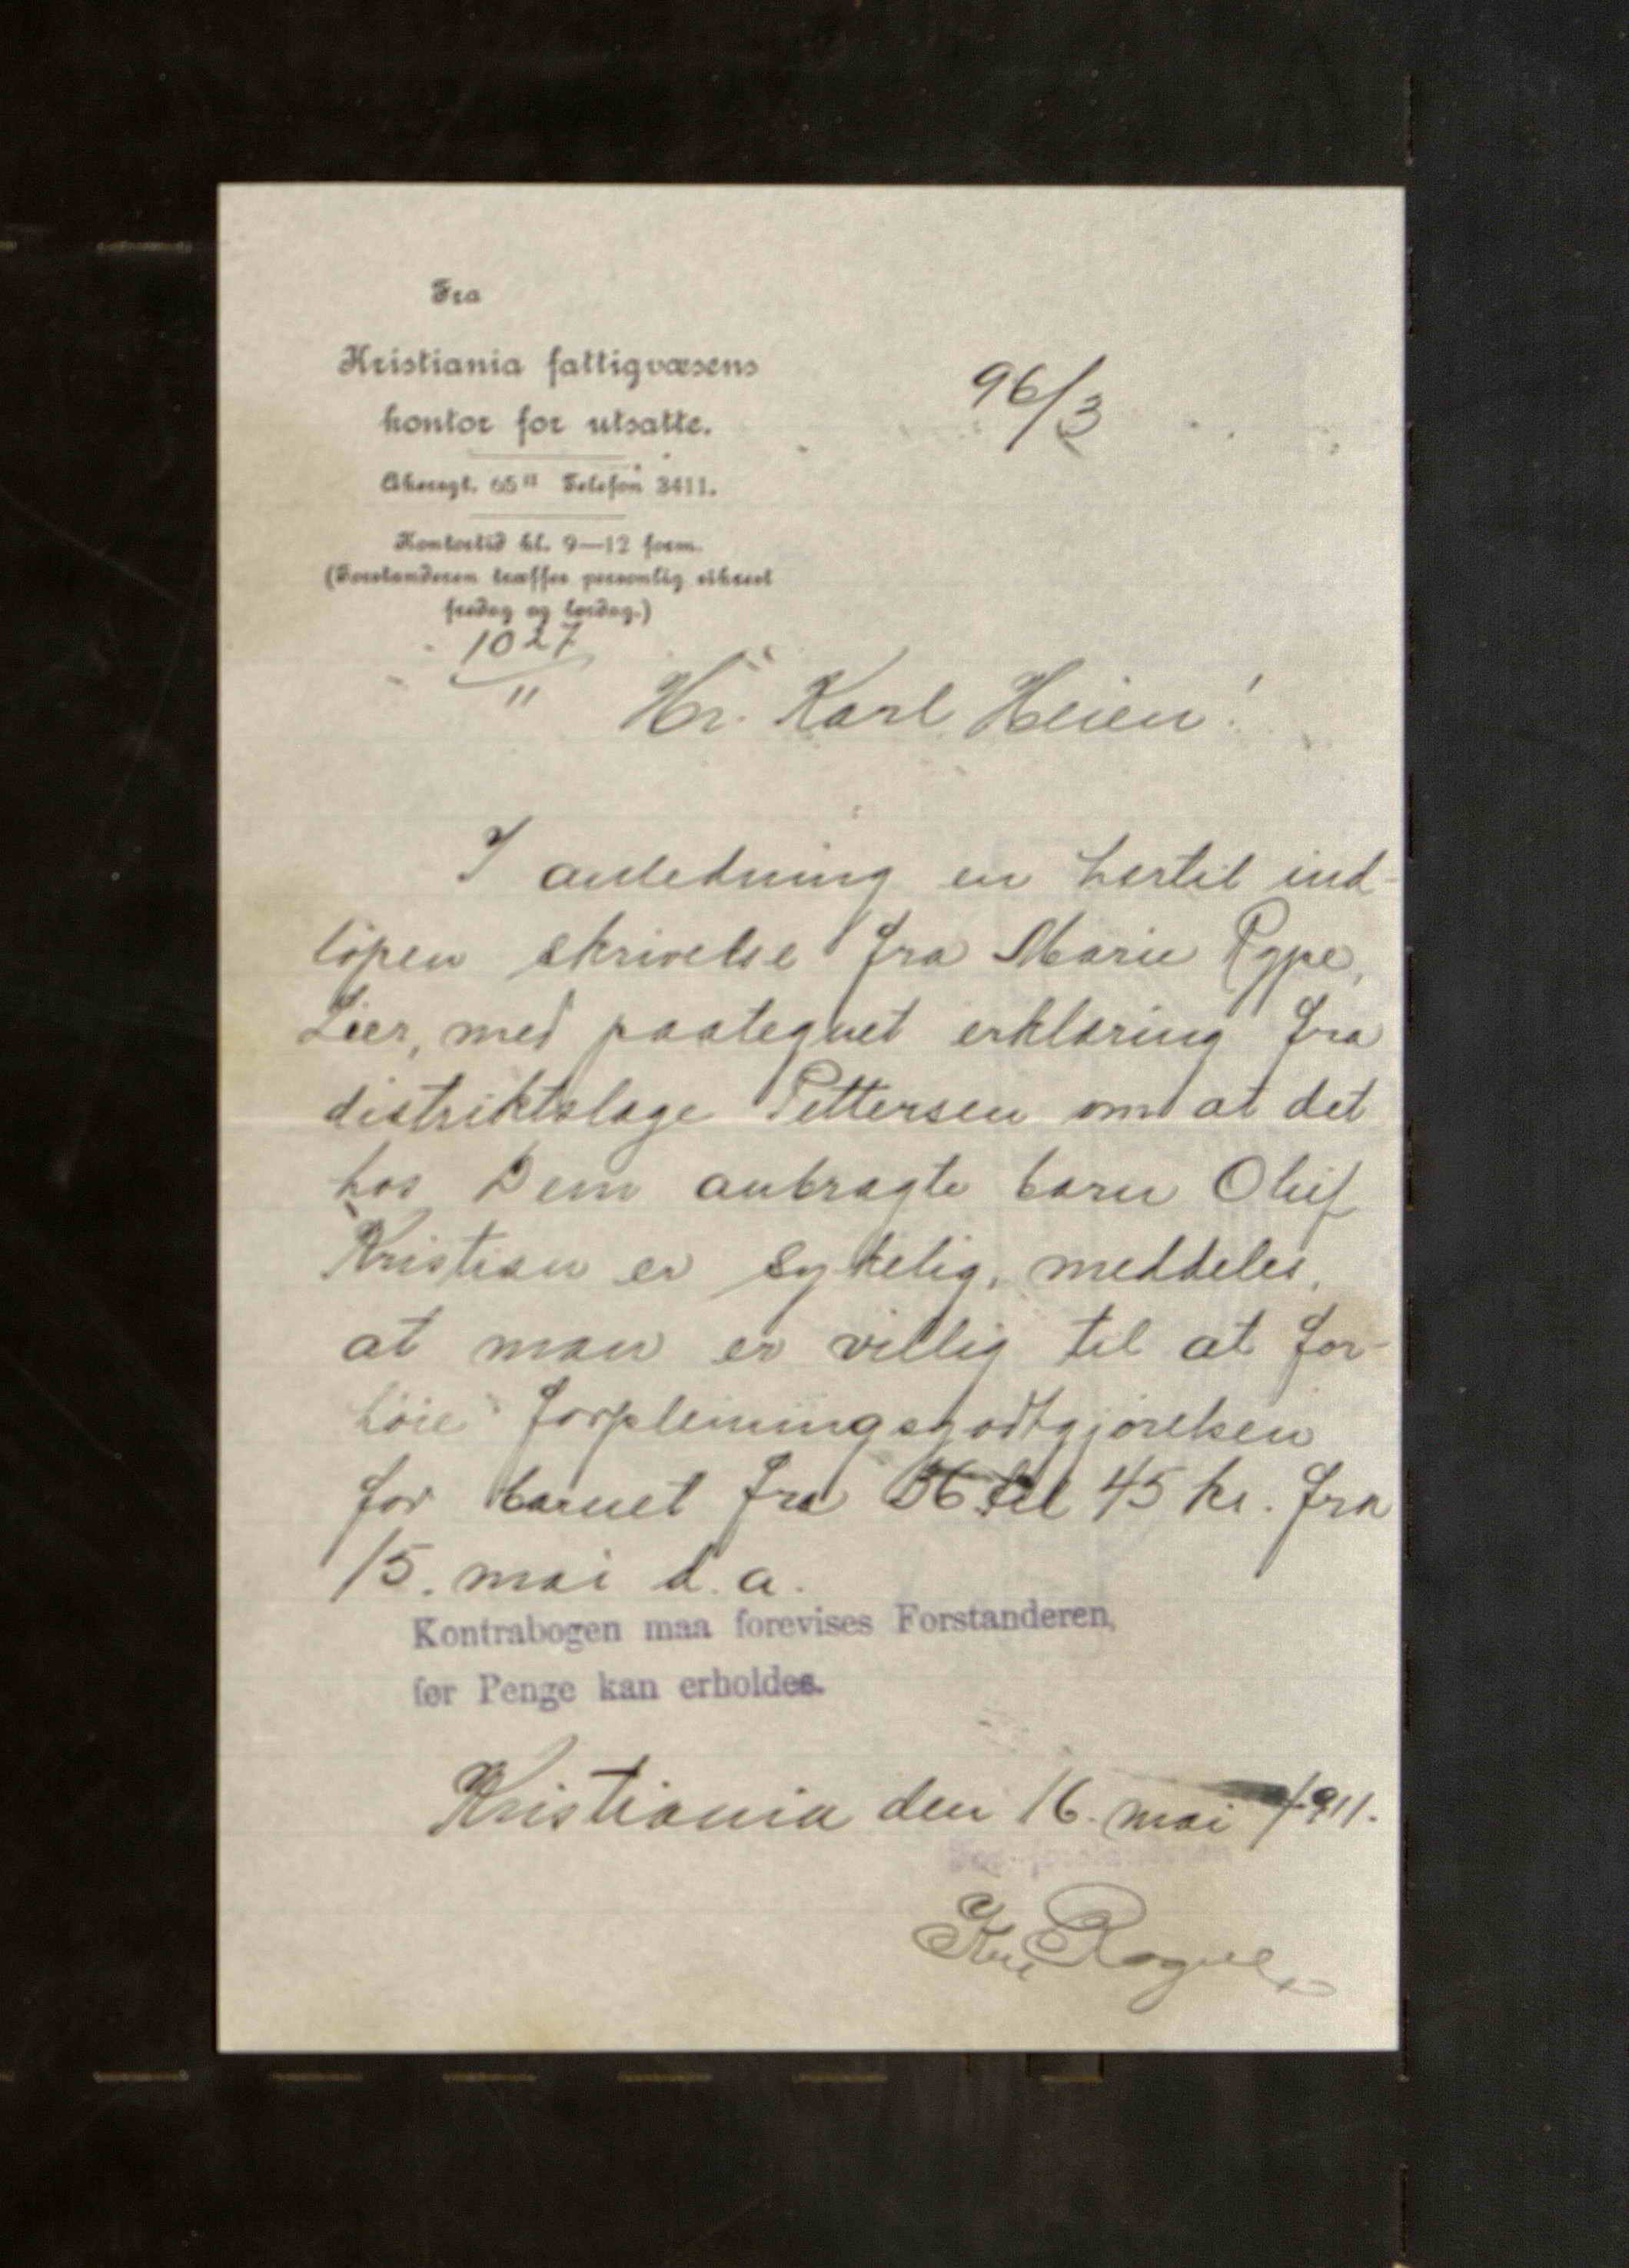 Fra
Kristiania fattigvæsens
kontor for utsatte.
Akersgt. 65 II Telefon 3411.
Kontortid kl. 9—12 form.
(Forstanderen træffes personlig sikrest
fredag og lørdag.)
96/3
1027
11
Hr. Karl Heien!
I anledning en hertil ind-
löpen skrivelse fra Marie Rype,
Lier, med paategnet erklæring fra
distriktslæge Pettersen om at det
hos Dem anbragte barn Oluf
Kristian er sykelig, meddeles,
at man er villig til at for-
höie forpleiningsgodtgjörelsen
for barnet fra 36 til 45 kr. fra
15. mai d. a.
Kontrabogen maa forevises Forstanderen,
før Penge kan erholdes.
Kristiania den 16. mai 1911.